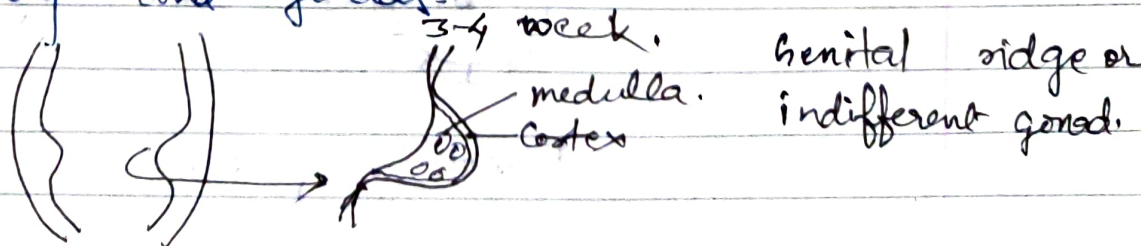 3-4 week.
medulla.
Cortex
Genital ridge or
indifferent gonad.